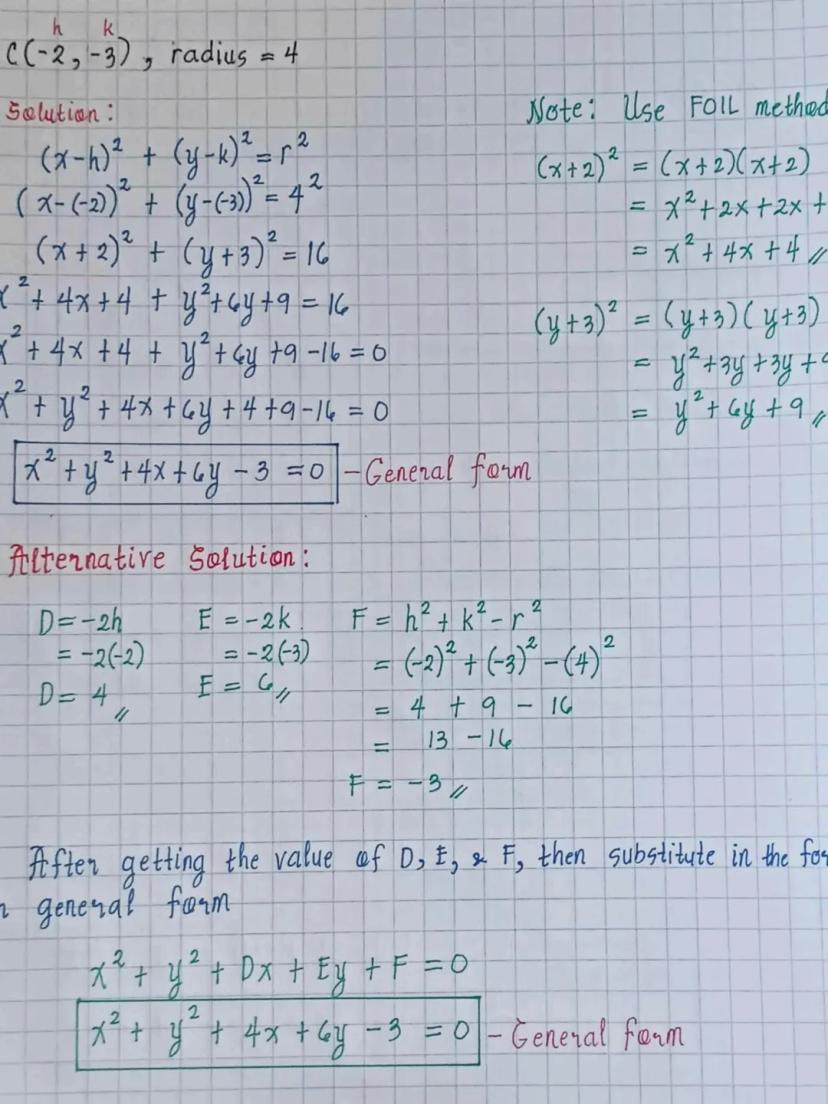 h k
C(-2, -3), radius = 4
Solution:
(x-h)² + (y-k)² = r²
(x-(-2))² + (y-(-3))² = 4²
(x+2)² + (y+3)² = 16
x² + 4x + 4 + y² + 6y + 9 = 16
x² + 4x + 4 + y² + 6y + 9 - 16 = 0
x² + y² + 4x + 6y + 4 + 9 - 16 = 0
x² + y² + 4x + 6y - 3 = 0 - General form
Note: Use FOIL method
(x+2)² = (x+2)(x+2)
= x² + 2x + 2x +
= x² + 4x + 4 //
(y+3)² = (y+3)(y+3)
= y² + 3y + 3y +
= y² + 6y + 9 //
Alternative Solution:
D = -2h
= -2(-2)
D = 4 //
E = -2k
= -2(-3)
E = 6 //
F = h² + k² - r²
= (-2)² + (-3)² - (4)²
= 4 + 9 - 16
= 13 - 16
F = -3 //
After getting the value of D, E, & F, then substitute in the
general form
x² + y² + Dx + Ey + F = 0
x² + y² + 4x + 6y - 3 = 0 - General form